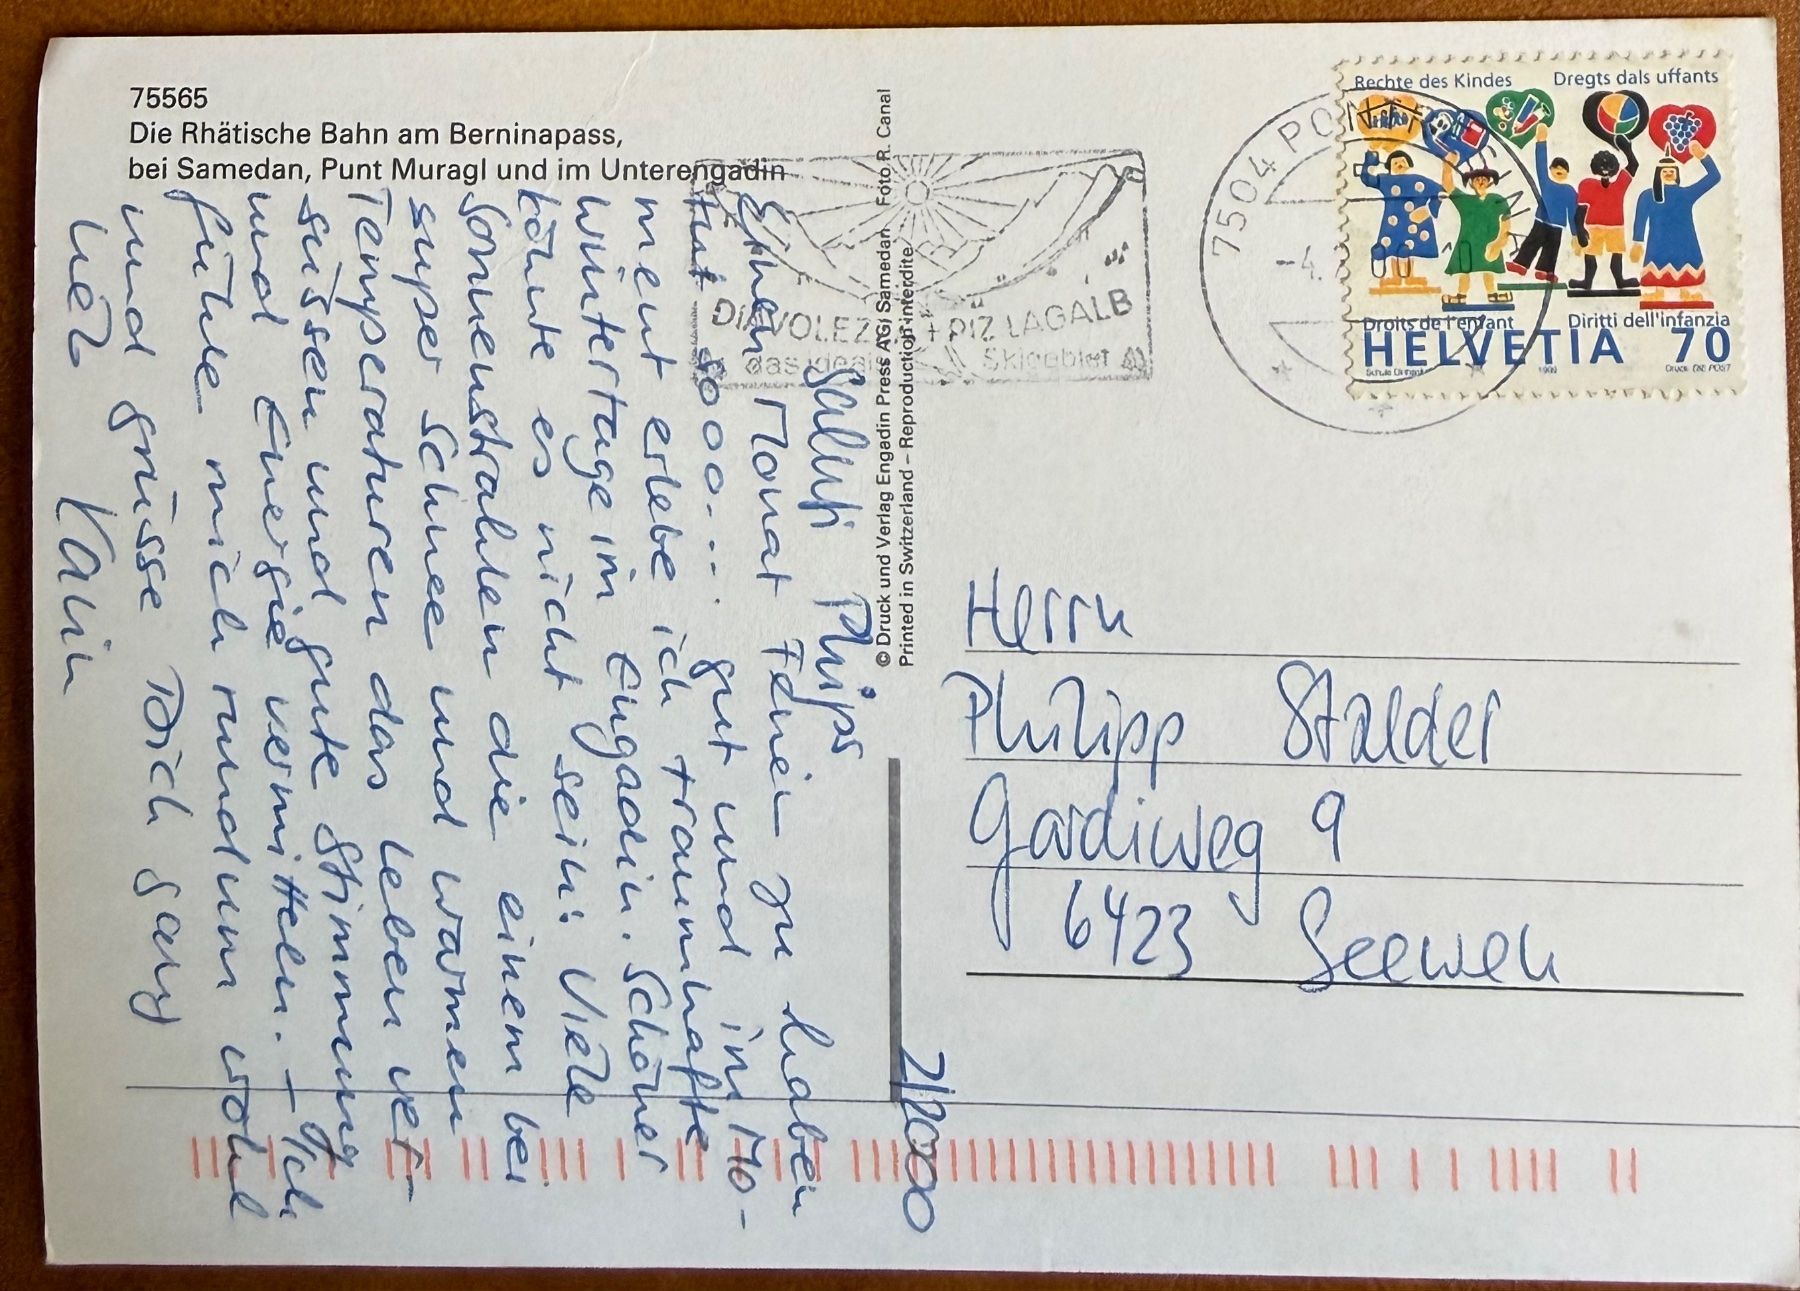 75565
Die Rhätische Bahn am Berninapass,
bei Samedan, Punt Muragl und im Unterengadin
Saluti Phips
Einen Monat Ferien zu haben
tut sooo.... gut und im Mo-
ment erlebe ich traumhafte
Wintertage im Engadin. Schöner
könnte es nicht sein: Viele
Sonnenstrahlen die einem bei
super Schnee und warmen
Temperaturen das Leben ver-
süssen und gute Stimmung
und Energie vermitteln. – Ich
fühle mich rundum wohl
und grüsse Dich ganz
Karin
© Druck und Verlag Engadin Press AG, Samedan Foto R. Canal
Printed in Switzerland – Reproduction interdite
2/2000
DIAVOLEZZA + PIZ LAGALB
das ideale Skigebiet
7504 PONTRESINA
-4.
Rechte des Kindes Dregts dals uffants
Droits de l'enfant Diritti dell'infanzia
HELVETIA 70
Herrn
Philipp Stalder
Gardiweg 9
6423 Seewen